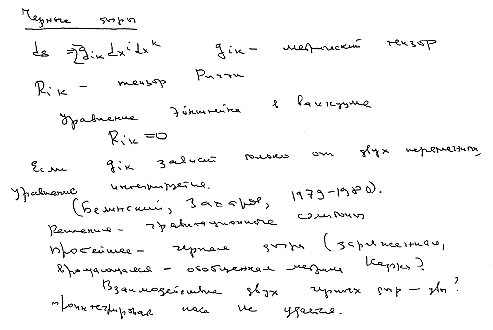 Черные дыры
ds = Σ g_ik dx^i dx^k g_ik – метрический тензор
R_ik – тензор Риччи
Уравнение Эйнштейна в вакууме
R_ik = 0
Если g_ik зависит только от двух переменных,
уравнение интегрируется.
(Белинский, Захаров, 1979-1980).
Решения – гравитационные солитоны
Простейшее – черная дыра (заряженная,
вращающаяся – обобщенная метрика Керра?
Взаимодействие двух черных дыр – увы?
проинтегрировать пока не удается.